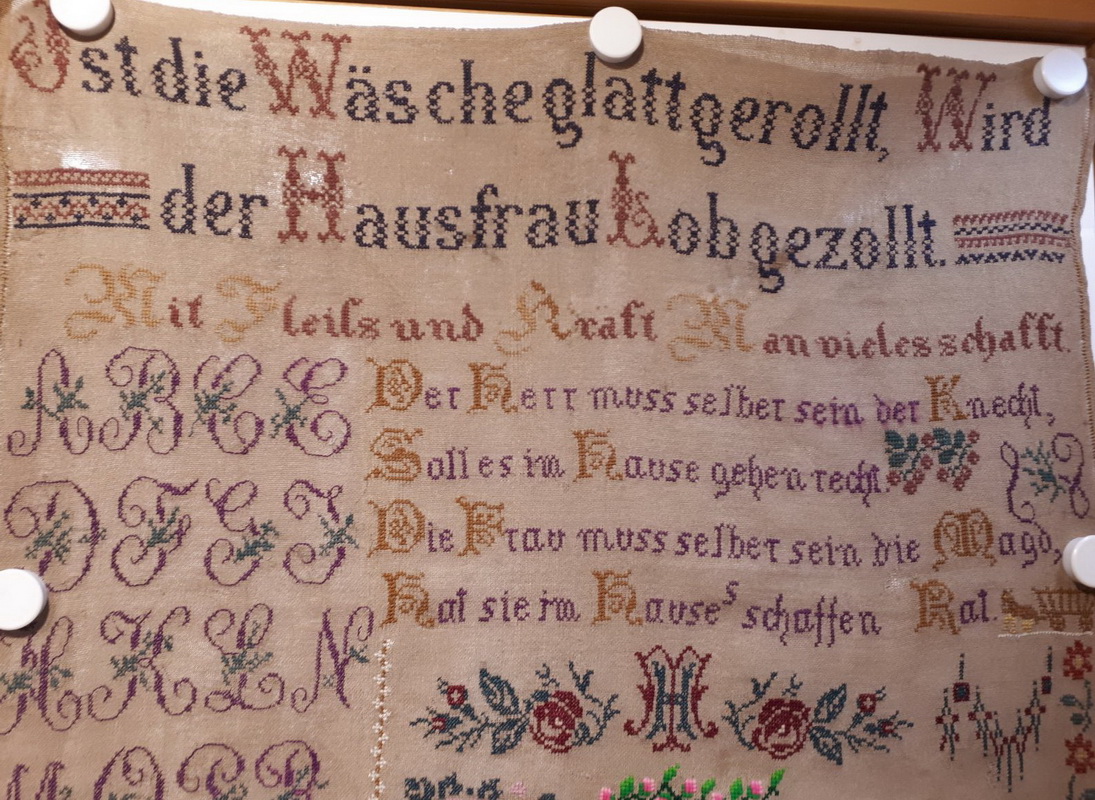 Ist die Wäsche glatt gerollt, Wird
der Hausfrau Lob gezollt.
Mit Fleiss und Kraft Man vieles schafft.
A B C E
Der Herr muss selber sein der Knecht,
Soll es im Hause gehen recht.
D F G J
Die Frau muss selber sein die Magd,
Hat sie im Hause s schaffen Rat.
H K L N